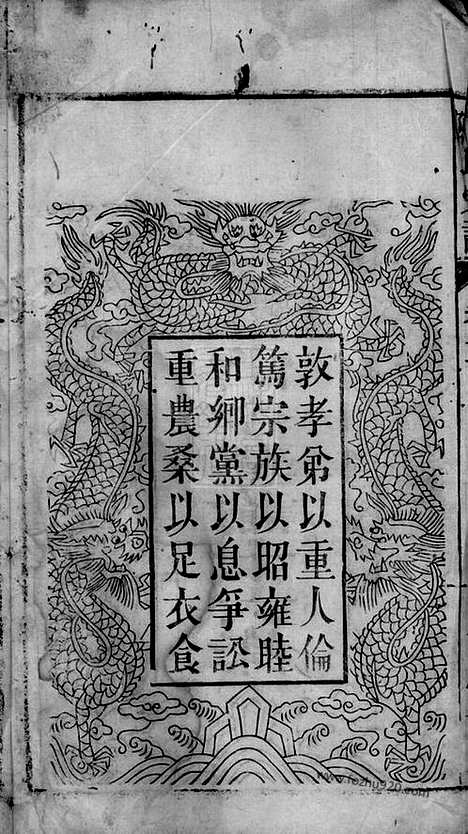 敦孝弟以重人倫
篤宗族以昭雍睦
和鄉黨以息爭訟
重農桑以足衣食
www.fozhu920.com